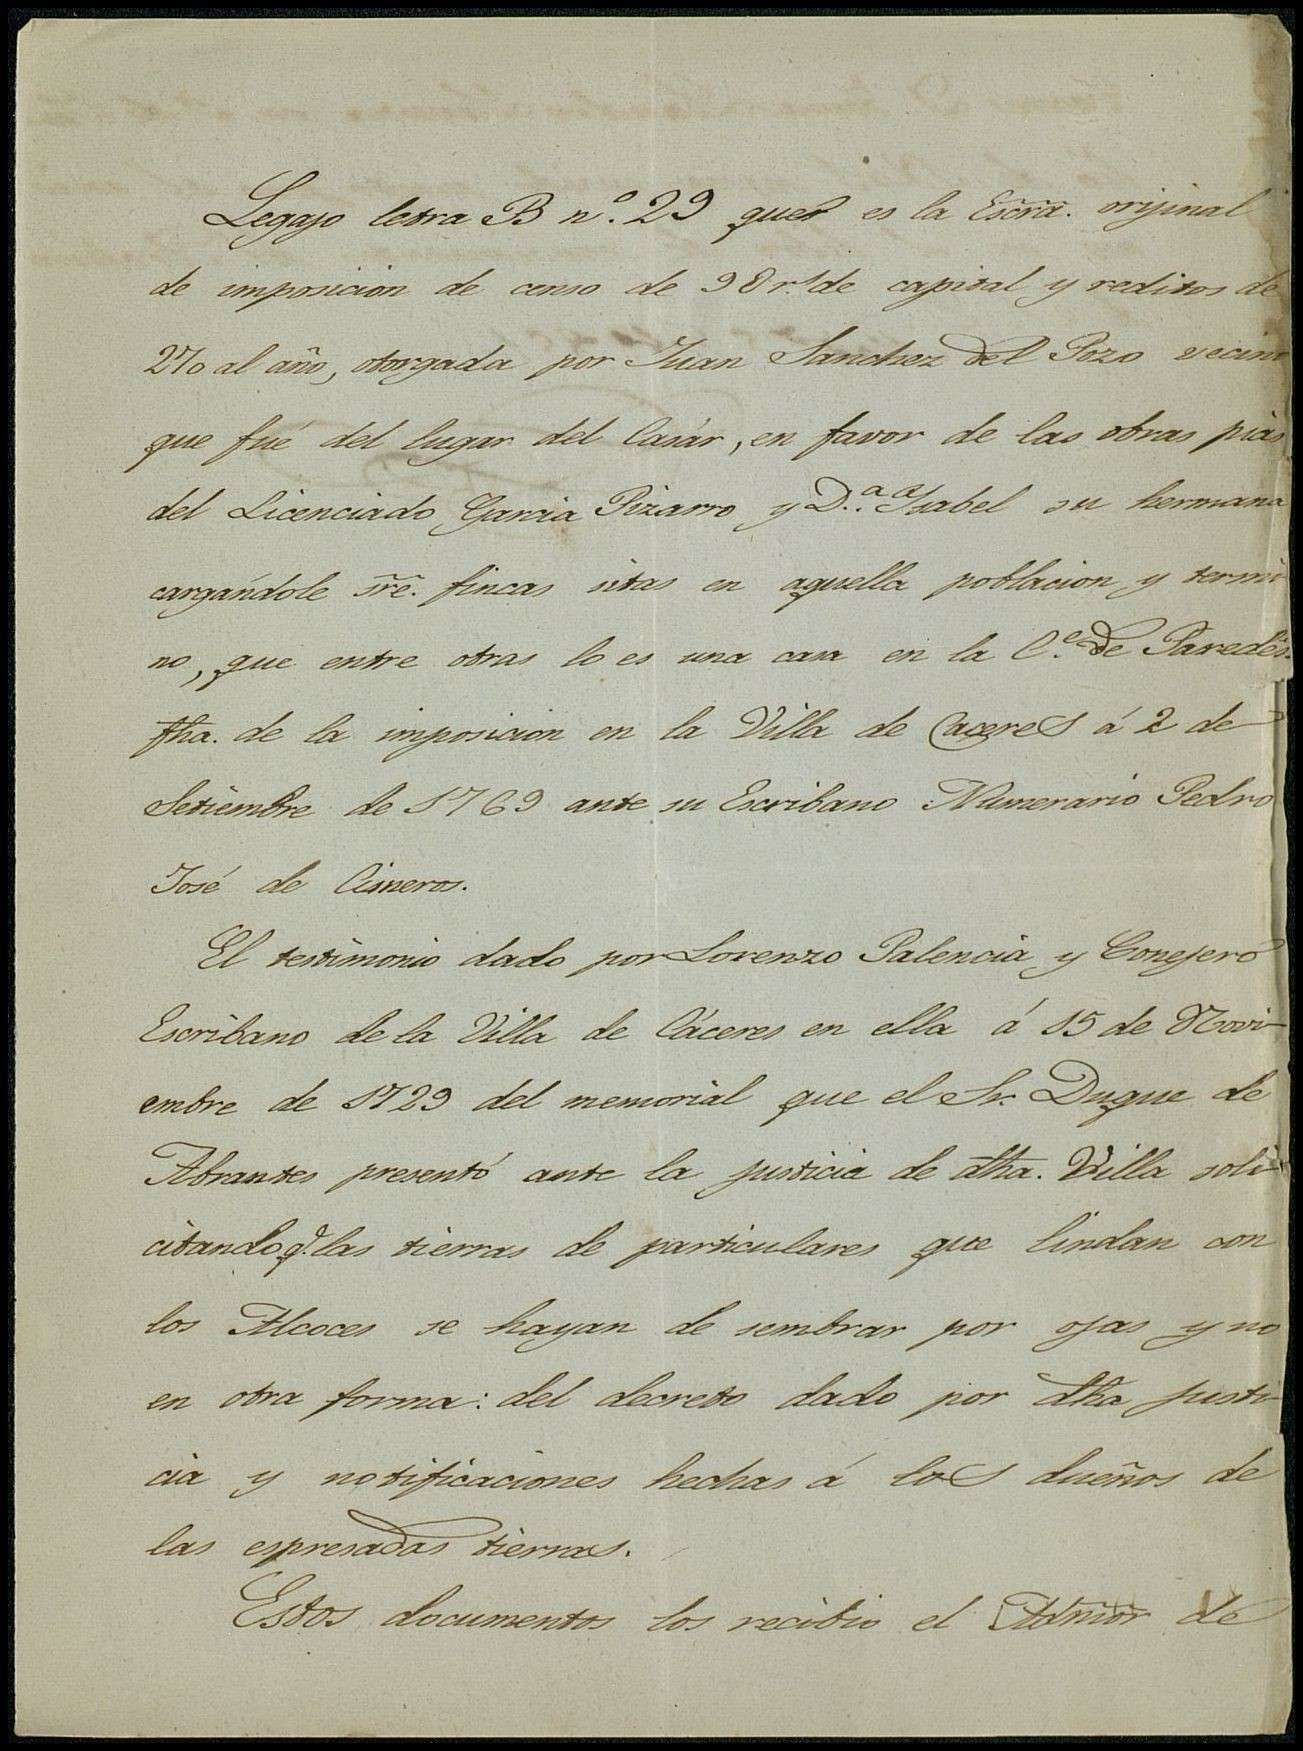 Legajo letra B nº. 29 que es la Escrã. orijinal
de imposicion de censo de 98 rˢ. de capital y reditos de
al año, otorgada por Juan Sanchez del Pozo vecino
que fué del lugar del Casár, en favor de las obras pias
del Licenciado Garcia Pizarro y D.ª Isabel su hermana
cargándole sr̃e. fincas sitas en aquella poblacion y termi-
no, que entre otras lo es una casa en la C.ᵉ de Paredes.
fha. de la imposicion en la Villa de Caceres á 2 de
Setiembre de 1769 ante su Escribano Numerario Pedro
José de Cisneros.
El testimonio dado por Lorenzo Palencia y Conejero
Escribano de la Villa de Cáceres en ella á 15 de Novi-
embre de 1729 del memorial que el Sr. Duque de
Abrantes presentó ante la justicia de dha. Villa soli-
citando q.ᵉ las tierras de particulares que lindan con
los Alcoces se hayan de sembrar por ojas y no
en otra forma: del decreto dado por dha justi-
cia y notificaciones hechas á los dueños de
las espresadas tierras.
Estos documentos los recibio el Admõr de